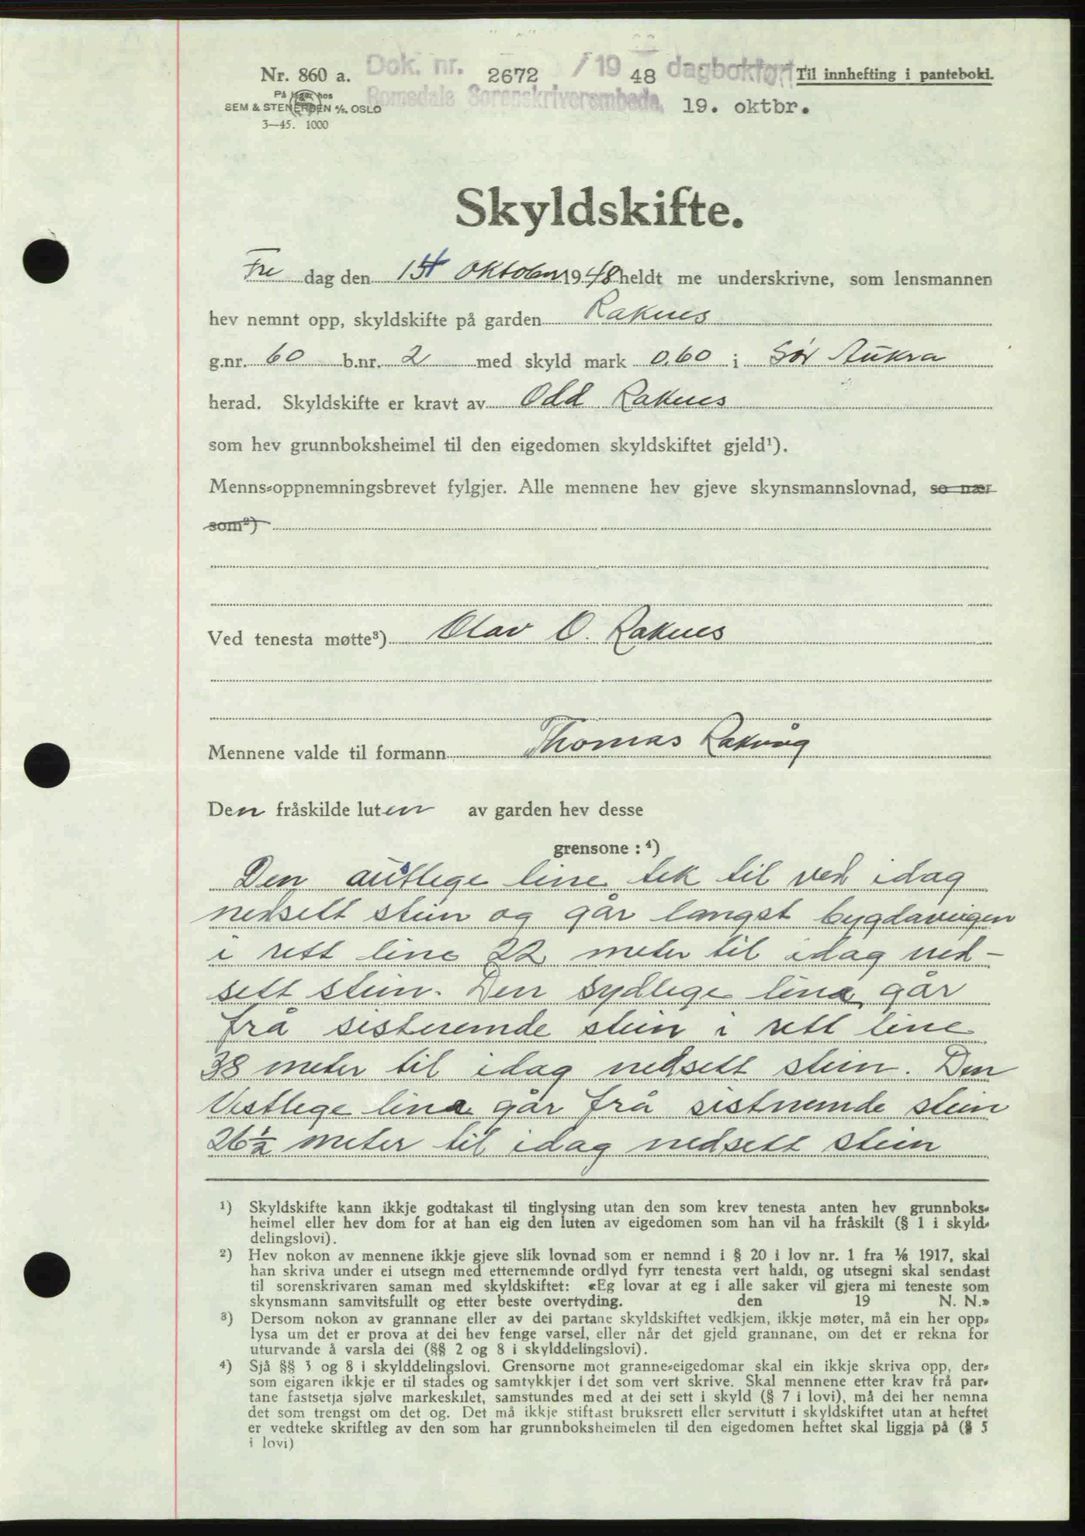 Nr. 860 a. Dok. nr. 2672 /19 48 dagbokført Til innhefting i panteboki.
På lager hos
SEM & STENERSEN A/S, OSLO Romsdals Sorenskriverembede, 19. oktbr.
3-45. 1000
Skyldskifte.
Fre dag den 15 oktober 1948 heldt me underskrivne, som lensmannen
hev nemnt opp, skyldskifte på garden Raknes
g.nr. 60 b.nr. 2 med skyld mark 0,60 i Sør Aukra
herad. Skyldskifte er kravt av Odd Raknes
som hev grunnboksheimel til den eigedomen skyldskiftet gjeld¹).
Menns-oppnemningsbrevet fylgjer. Alle mennene hev gjeve skynsmannslovnad, so nær
som²)
Ved tenesta møtte³) Olav O. Raknes
Mennene valde til formann Thomas Rakvåg
Den fråskilde luten av garden hev desse
grensone : ⁴)
Den austlege line tek til ved idag
nedsett stein og går langst bygdavegen
i rett line 22 meter til idag ned-
sett stein. Den sydlege lina går
frå sistnemde stein i rett line
38 meter til idag nedsett stein. Den
Vestlege lina går frå sistnemde stein
26½ meter til idag nedsett stein
¹) Skyldskifte kann ikkje godtakast til tinglysing utan den som krev tenesta anten hev grunnboks-
heimel eller hev dom for at han eig den luten av eigedomen som han vil ha fråskilt (§ 1 i skyld-
delingslovi).
²) Hev nokon av mennene ikkje gjeve slik lovnad som er nemnd i § 20 i lov nr. 1 fra 1/6 1917, skal
han skriva under ei utsegn med etternemnde ordlyd fyrr tenesta vert haldi, og utsegni skal sendast
til sorenskrivaren saman med skyldskiftet: «Eg lovar at eg i alle saker vil gjera mi teneste som
skynsmann samvitsfullt og etter beste overtyding. den 19 N. N.»
³) Dersom nokon av grannane eller av dei partane skyldskiftet vedkjem, ikkje møter, må ein her opp-
lysa um det er prova at dei hev fenge varsel, eller når det gjeld grannane, om det er rekna for
uturvande å varsla dei (§§ 2 og 8 i skylddelingslovi).
⁴) Sjå §§ 3 og 8 i skylddelingslovi. Grensorne mot granne-eigedomar skal ein ikkje skriva opp, der-
som eigaren ikkje er til stades og samtykkjer i det som vert skrive. Skal mennene etter krav frå par-
tane fastsetja sjølve markeskilet, samstundes med at dei sett i skyld (§ 7 i lovi), må dei her nemna
det som trengst om det og. Det må ikkje stiftast bruksrett eller servitutt i skyldskiftet utan at heftet
er vedteke skriftleg av den som har grunnboksheimelen til den eigedomen heftet skal liggja på (§ 5
i lovi)